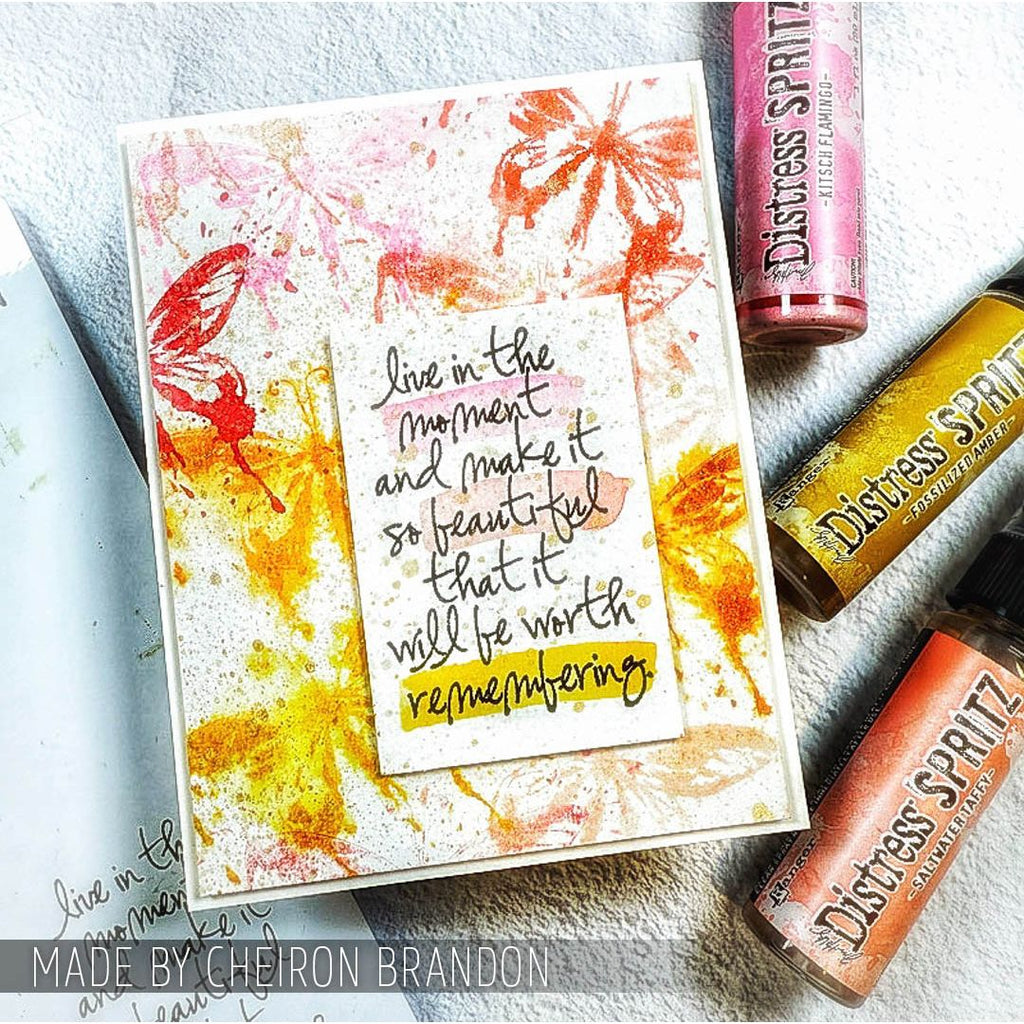 live in the
moment
and make it
so beautiful
that it
will be worth
remembering.
Distress SPRITZ
-KITSCH FLAMINGO-
Ranger
Distress SPRITZ
-FOSSILIZED AMBER-
Ranger
Distress SPRITZ
-SALTWATER TAFFY-
live in th
momen
and make it
beautiful
MADE BY CHEIRON BRANDON